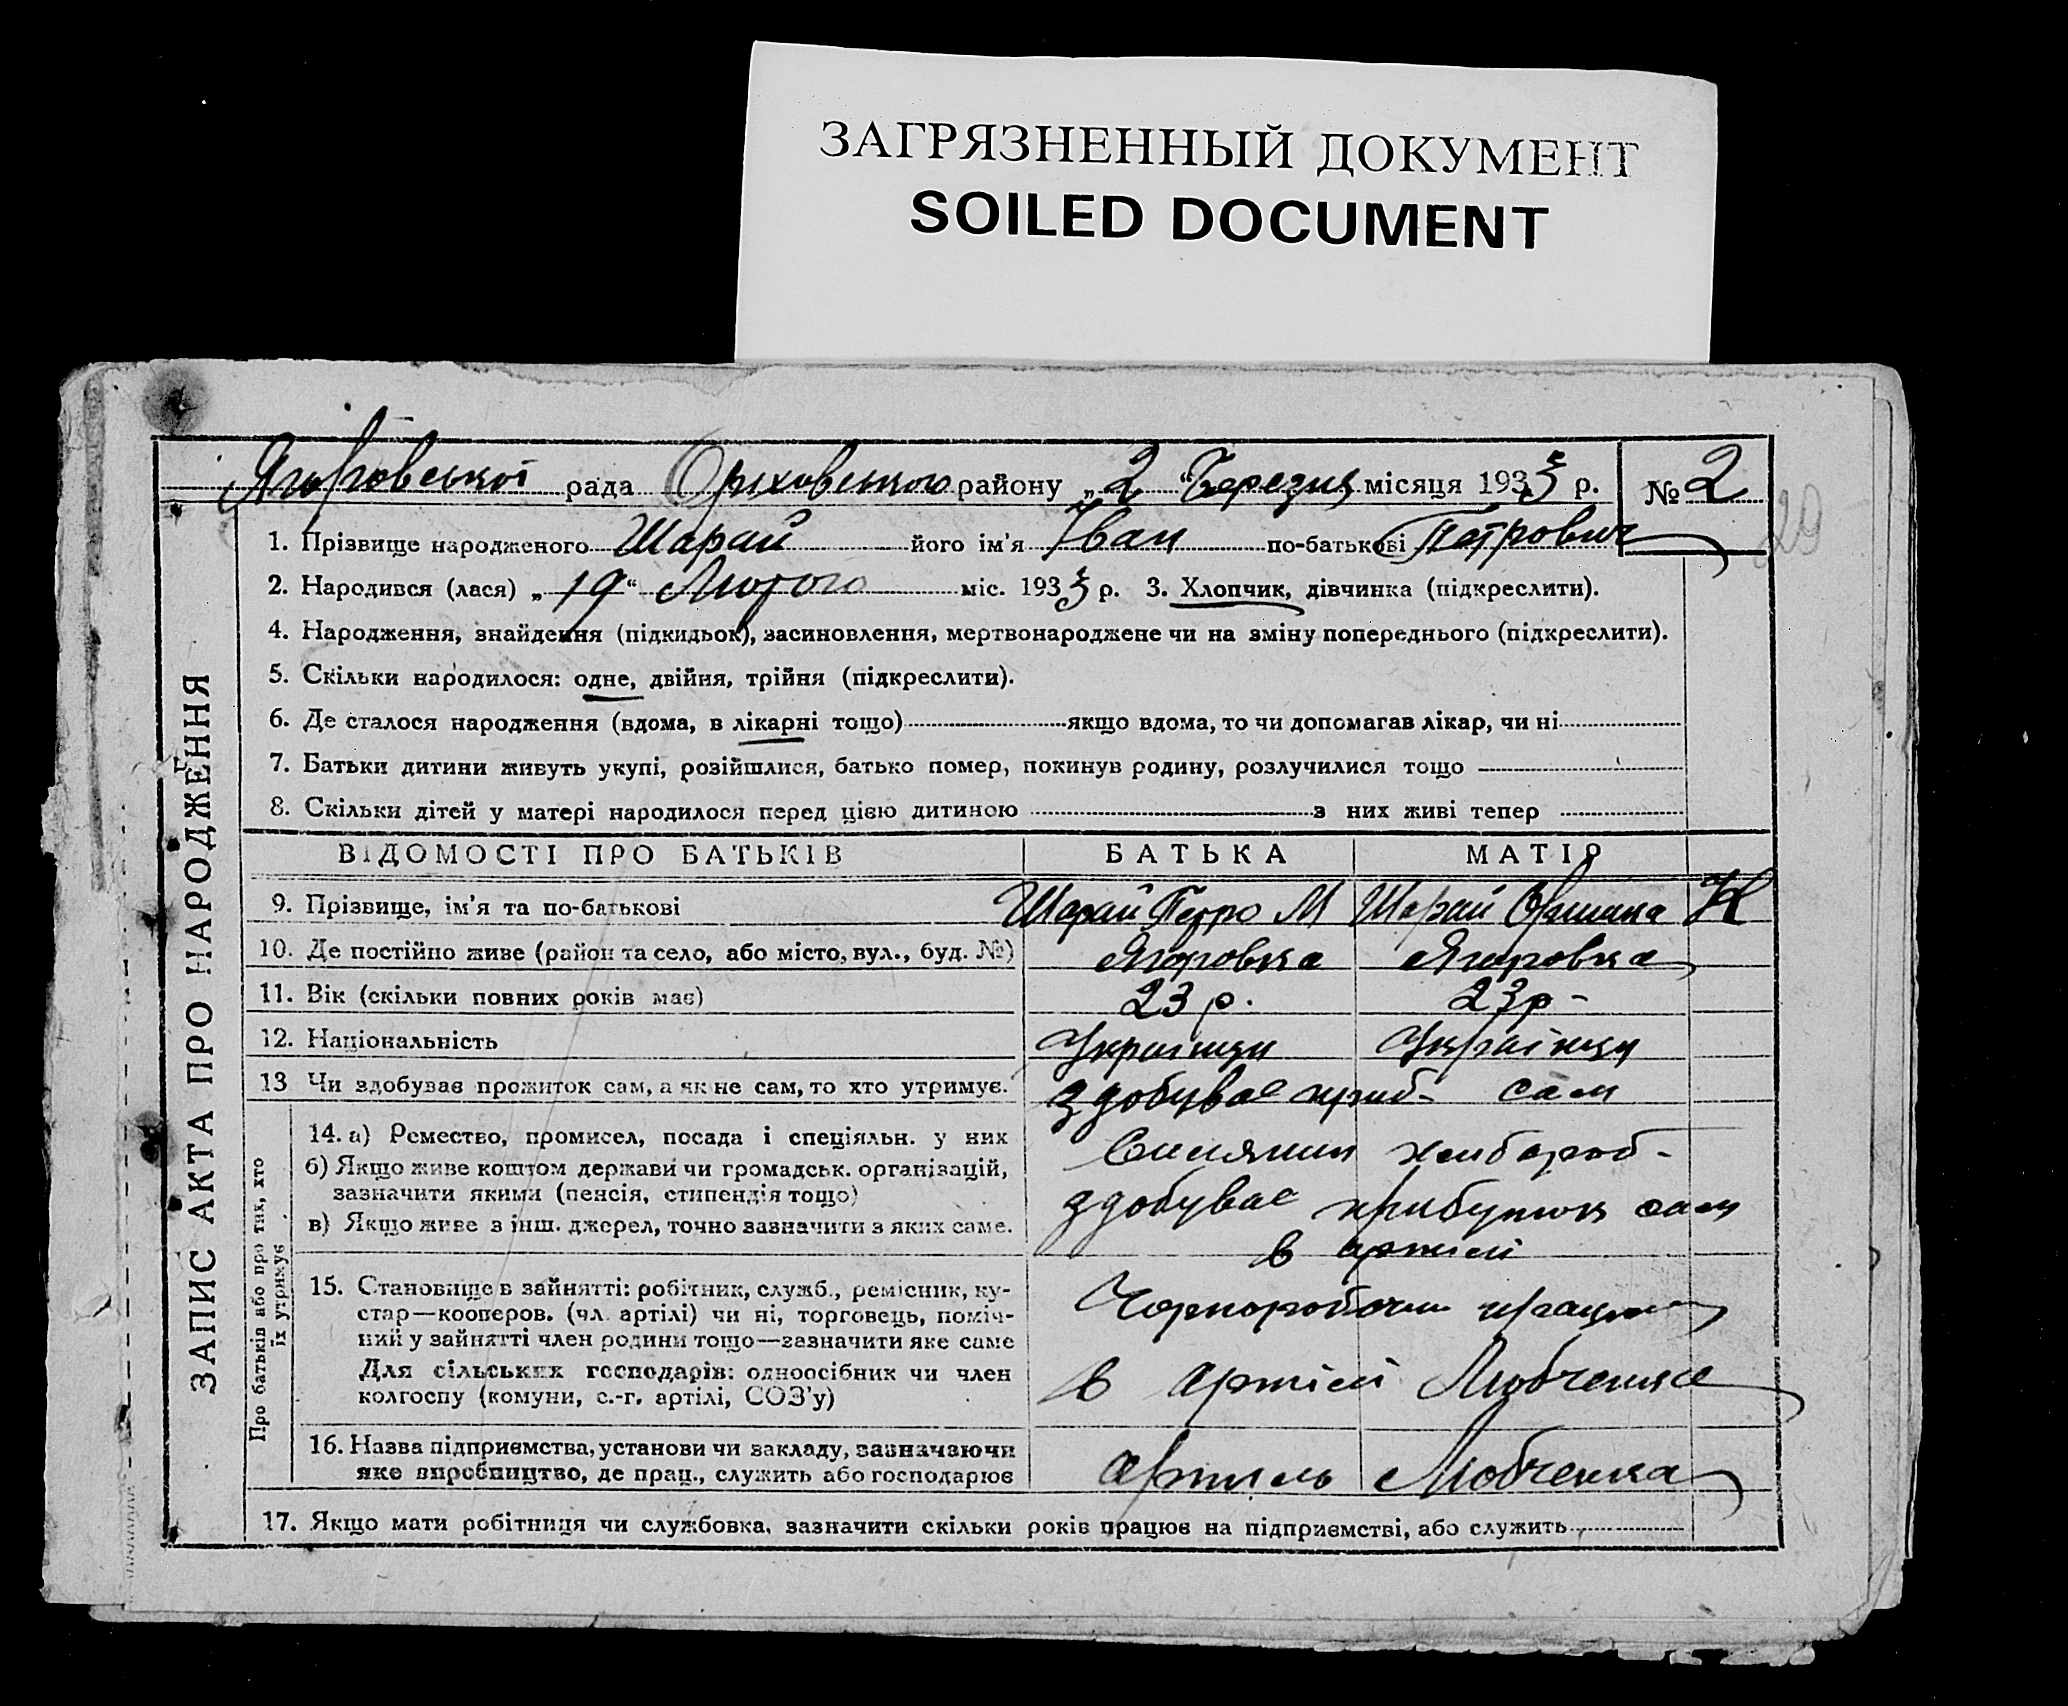 ЗАГРЯЗНЕННЫЙ ДОКУМЕНТ
SOILED DOCUMENT
Ягорговської рада Оріховського району „2“ Березня місяця 1933 р. № 2
20
1. Прізвище народженого Шарай його ім'я Іван по-батькові Петрович
2. Народився (лася) „19“ Лютого міс. 1933 р. 3. Хлопчик, дівчинка (підкреслити).
4. Народження, знайдення (підкидьок), засиновлення, мертвонароджене чи на зміну попереднього (підкреслити).
5. Скільки народилося: одне, двійня, трійня (підкреслити).
6. Де сталося народження (вдома, в лікарні тощо) якщо вдома, то чи допомагав лікар, чи ні
7. Батьки дитини живуть укупі, розійшлися, батько помер, покинув родину, розлучилися тощо
8. Скільки дітей у матері народилося перед цією дитиною з них живі тепер
ЗАПИС АКТА ПРО НАРОДЖЕННЯ
ВІДОМОСТІ ПРО БАТЬКІВ БАТЬКА МАТІР
9. Прізвище, ім'я та по-батькові Шарай Петро М Шарай К
10. Де постійно живе (район та село, або місто, вул., буд. №)
11. Вік (скільки повних років має) 23 р. 23 р-
12. Національність Українци Українци
13 Чи здобуває прожиток сам, а як не сам, то хто утримує. здобувае приб- сам
Про батьків або про тих, хто
їх утримує
14. а) Ремество, промисел, посада і спеціяльн. у них
б) Якщо живе коштом держави чи громадськ. організацій,
зазначити якими (пенсія, стипендія тощо)
в) Якщо живе з інш. джерел, точно зазначити з яких саме.
Силянин хлибороб-
здобувае прибуток сам
в артилі
15. Становище в зайнятті: робітник, служб., ремісник, ку-
стар—кооперов. (чл. артілі) чи ні, торговець, поміч-
ний у зайнятті член родини тощо—зазначити яке саме
Для сільських господарів: одноосібник чи член
колгоспу (комуни, с.-г. артілі, СОЗ'у)
Чорноробочи
в артілі Любченка
16. Назва підприємства, установи чи закладу, зазначаючи
яке виробництво, де прац., служить або господарює
Артиль Любченка
17. Якщо мати робітниця чи службовка, зазначити скільки років працює на підприємстві, або служить